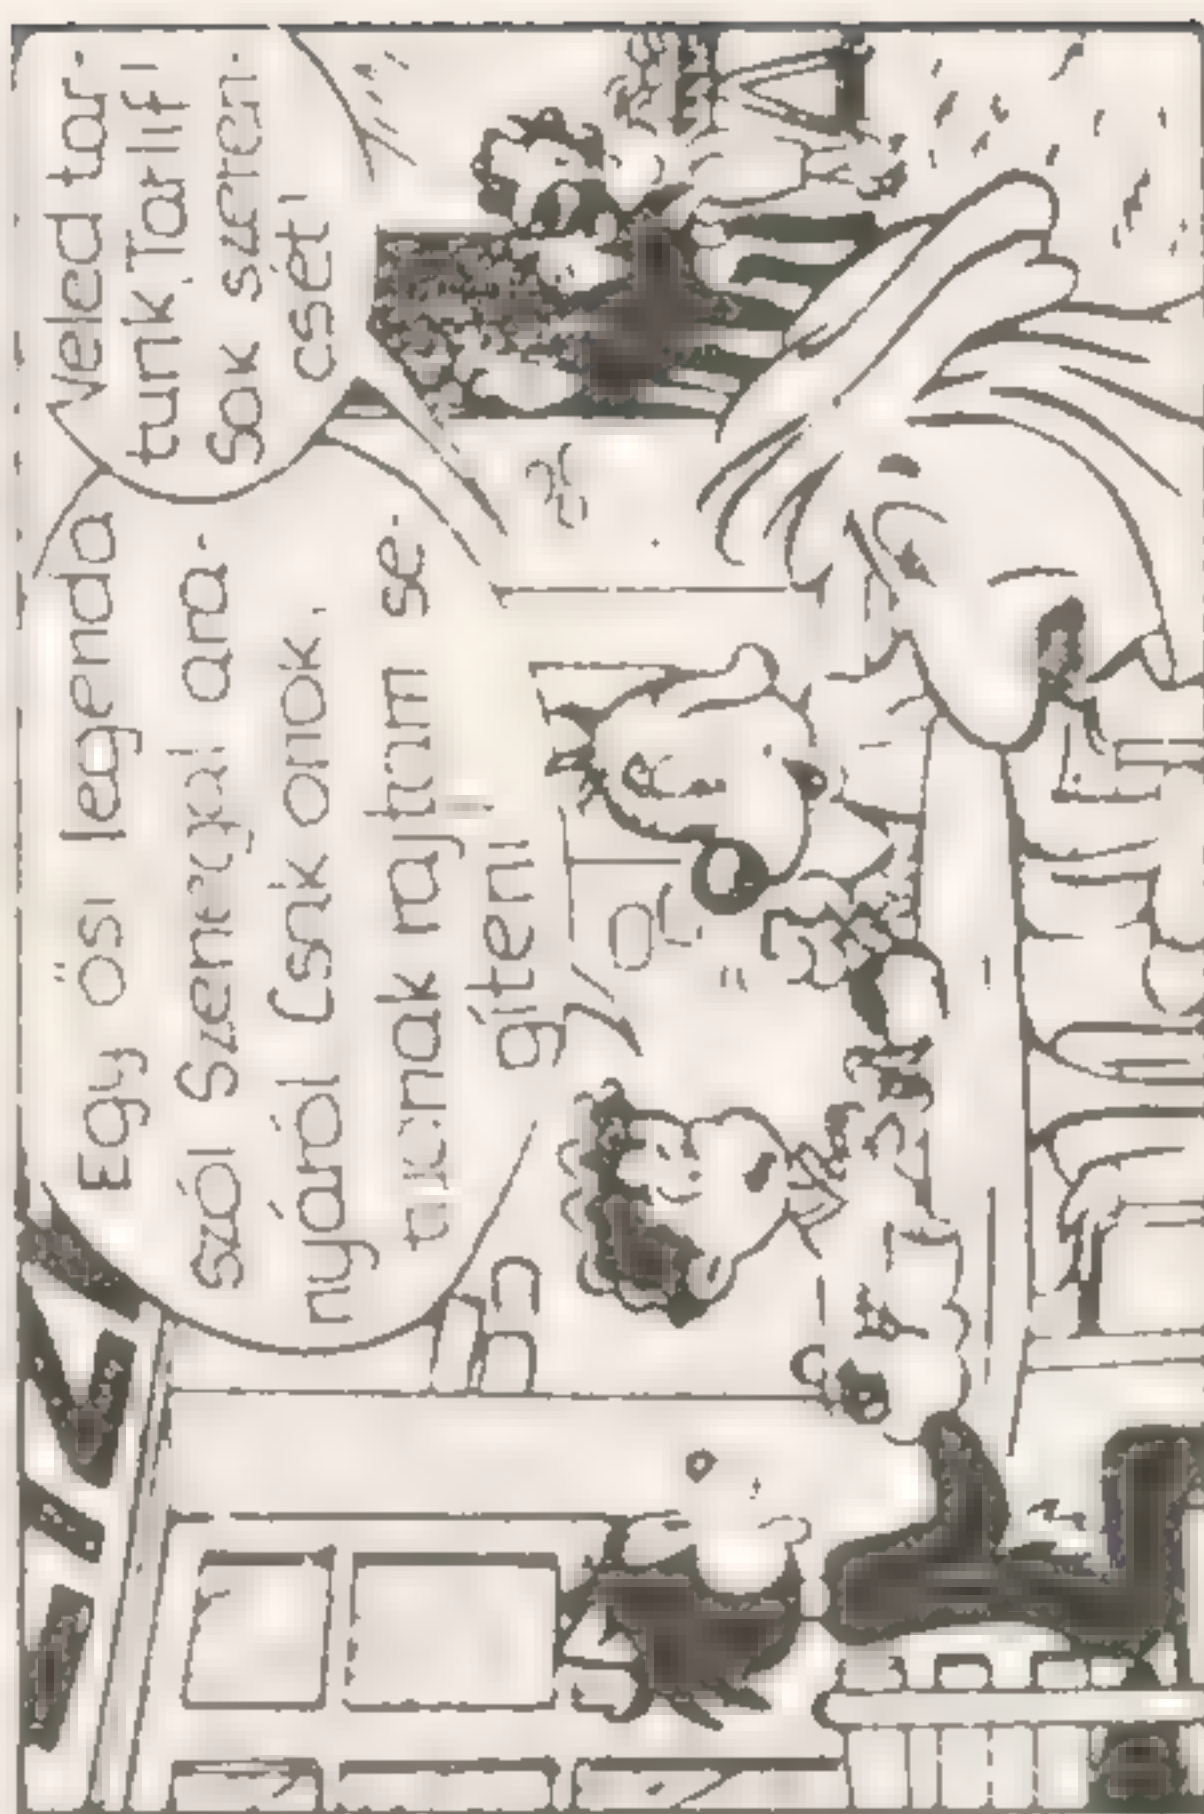 Egy ősi legenda
szól Szenegal ara-
nyáról Csak önök
tudnak rajtam se-
gíteni
Veled tar-
tunk, Tarlif!
Sok szeren-
csét!